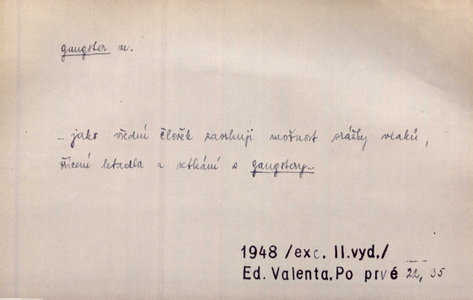 gangster m.
.. jako všední člověk zaostují možnost srážky vlaků,
zřícení letadla a setkání s gangstery...
1948 /exc. II.vyd./
Ed. Valenta, Po prvé 22, 35